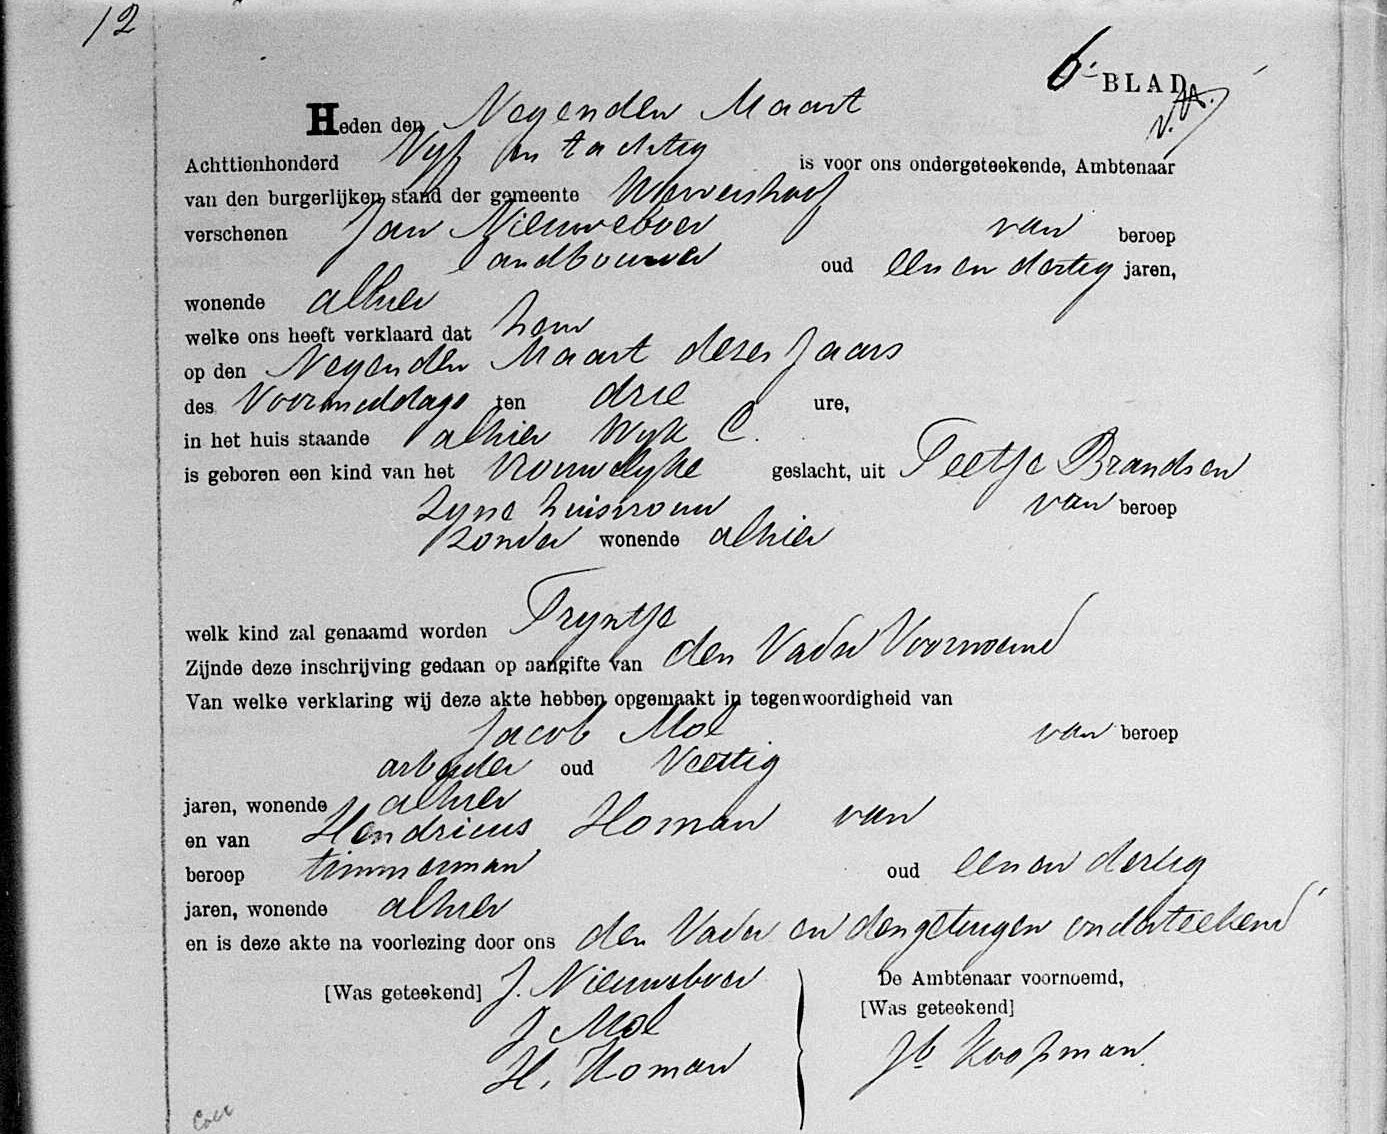 12
6e BLAD
Heden den Negenden Maart
Achttienhonderd Vyf en tachtig is voor ons ondergeteekende, Ambtenaar
van den burgerlijken stand der gemeente Wervershoof
verschenen Jan Nieuweboer van beroep
landbouwer oud een en dertig jaren,
wonende alhier
welke ons heeft verklaard dat hem
op den Negenden Maart dezes Jaars
des Voormiddags ten drie ure,
in het huis staande alhier Wyk C.
is geboren een kind van het Vrouwelyke geslacht, uit Teetje Brandsen
zyne huisvrouw van beroep
zonder wonende alhier
welk kind zal genaamd worden Tryntje
Zijnde deze inschrijving gedaan op aangifte van den Vader Voornoemd
Van welke verklaring wij deze akte hebben opgemaakt in tegenwoordigheid van
Jacob Mol van beroep
arbeider oud Veertig
jaren, wonende alhier
en van Hendricus Homan van
beroep timmerman oud een en dertig
jaren, wonende alhier
en is deze akte na voorlezing door ons den Vader en den getuigen onderteekend
[Was geteekend] J. Nieuweboer De Ambtenaar voornoemd,
J Mol [Was geteekend]
H. Homan Jb Koopman.